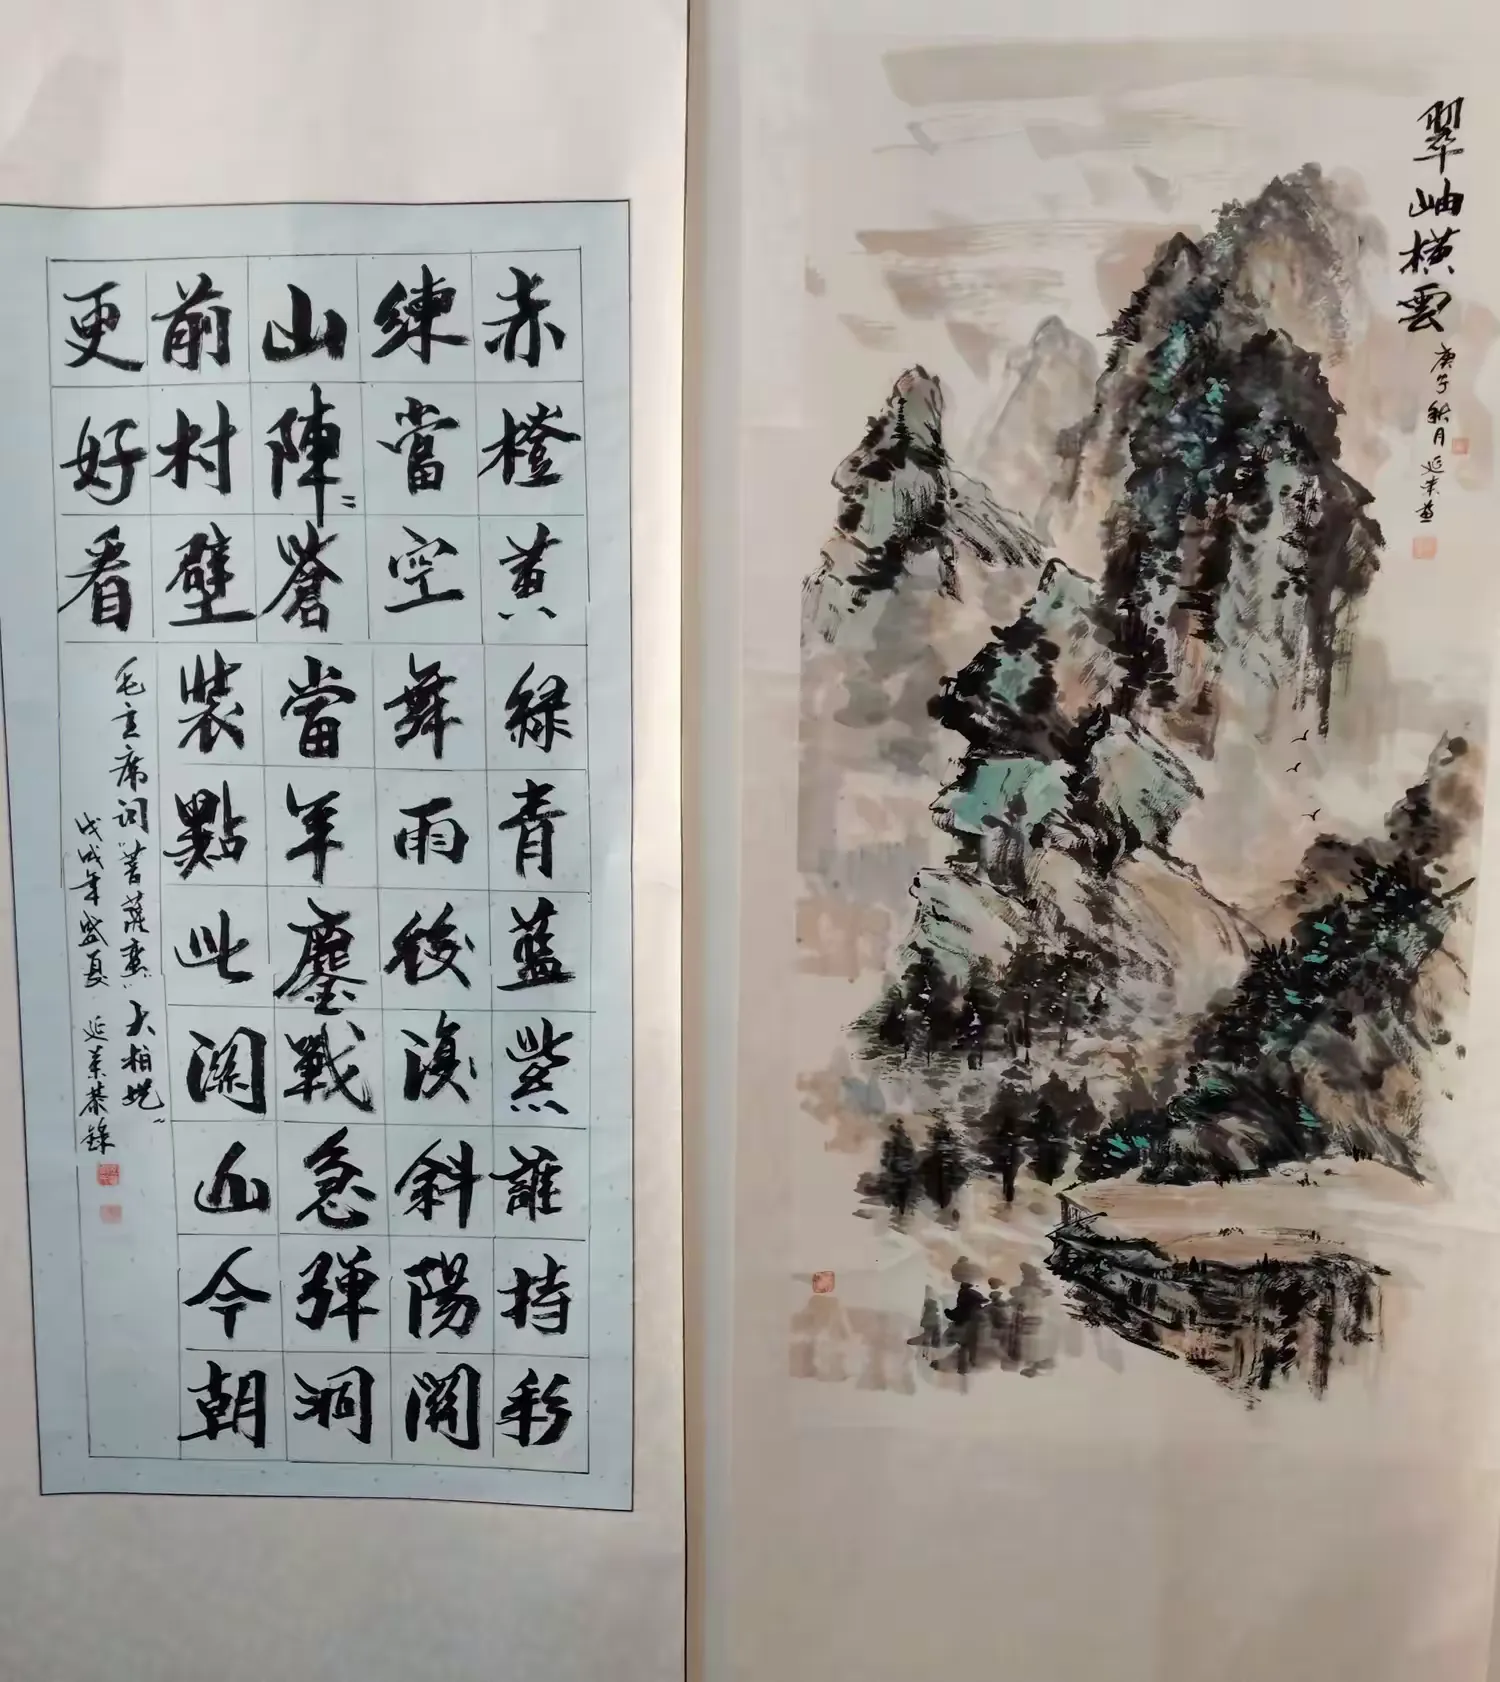 赤橙黄緑青藍紫誰持彩
練當空舞雨後復斜陽関
山陣〻蒼當年鏖戰急弹洞
前村壁装點此関山今朝
更好看
毛主席词菩薩蠻大柏地
戊戌年盛夏 延恭録
翠岫横雲
庚子秋月延畫